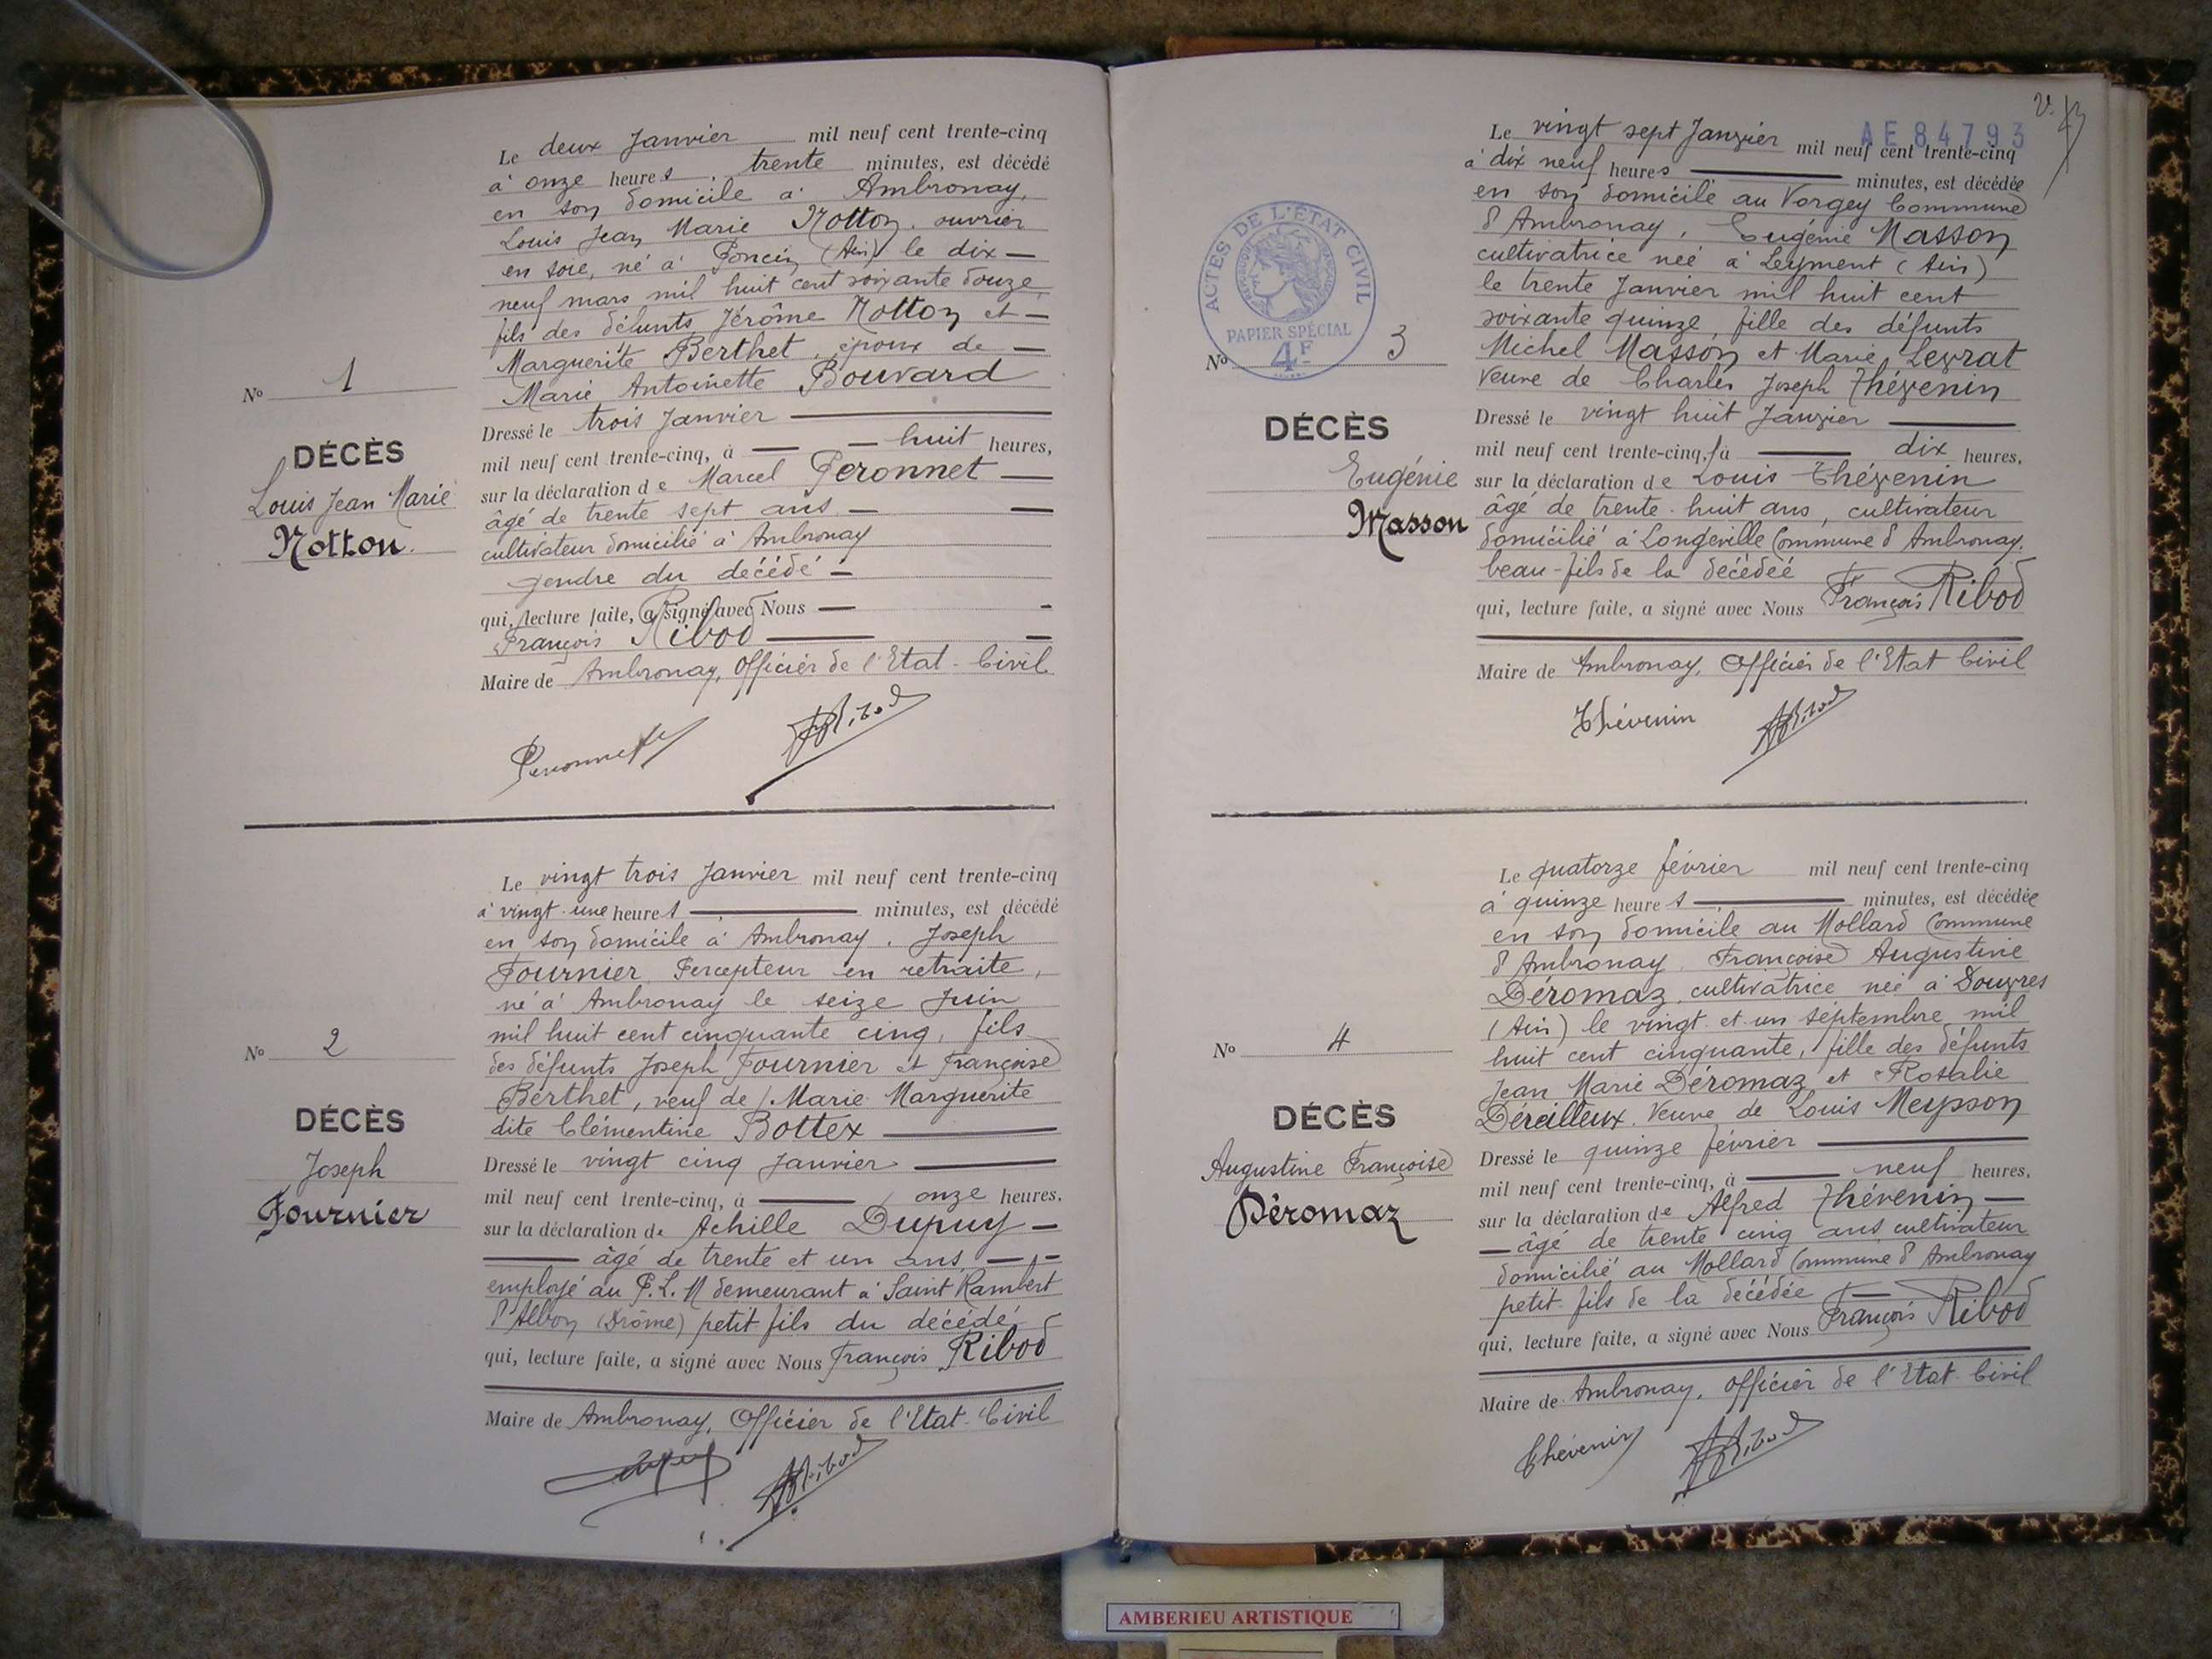 Le deux Janvier mil neuf cent trente-cinq
à onze heures, trente minutes, est décédé
en son domicile à Ambronay,
Louis Jean Marie Notton, ouvrier
en soie, né à Poncin (Ain) le dix-
neuf mars mil huit cent soixante douze,
fils des défunts Jérôme Notton et
Marguerite Berthet, époux de
Marie Antoinette Bouvard
Dressé le trois Janvier
mil neuf cent trente-cinq, à huit heures,
sur la déclaration de Marcel Peronnet
âgé de trente sept ans
cultivateur domicilié à Ambronay
gendre du décédé
qui, lecture faite, a signé avec Nous
François Ribod
Maire de Ambronay, Officier de l'Etat-Civil
Peronnet
Ribod
No 1
DÉCÈS
Louis Jean Marie
Notton.
Le vingt trois Janvier mil neuf cent trente-cinq
à vingt-une heures minutes, est décédé
en son domicile à Ambronay, Joseph
Fournier, Percepteur en retraite,
né à Ambronay le seize Juin
mil huit cent cinquante cinq, fils
des défunts Joseph Fournier et Françoise
Berthet, veuf de Marie Marguerite
dite Clémentine Bottex
Dressé le vingt cinq Janvier
mil neuf cent trente-cinq, à onze heures,
sur la déclaration de Achille Dupuy
âgé de trente et un ans,
employé au P.L.M demeurant à Saint Rambert
d'Albon (Drôme) petit fils du décédé
qui, lecture faite, a signé avec Nous François Ribod
Maire de Ambronay, Officier de l'Etat-Civil
Ribod
No 2
DÉCÈS
Joseph
Fournier
AE84793
Le vingt sept Janvier mil neuf cent trente-cinq
à dix neuf heures minutes, est décédée
en son domicile au Vorgey Commune
d'Ambronay, Eugénie Masson
cultivatrice née à Leyment (Ain)
le trente Janvier mil huit cent
soixante quinze, fille des défunts
Michel Masson et Marie Levrat
Veuve de Charles Joseph Thévenin
Dressé le vingt huit Janvier
mil neuf cent trente-cinq, à dix heures,
sur la déclaration de Louis Thévenin
âgé de trente-huit ans, cultivateur
domicilié à Longeville Commune d'Ambronay.
beau-fils de la décédée
qui, lecture faite, a signé avec Nous François Ribod
Maire de Ambronay, Officier de l'Etat Civil
Thévenin
Ribod
ACTES DE L'ÉTAT CIVIL
PAPIER SPÉCIAL
4F
No 3
DÉCÈS
Eugénie
Masson
Le quatorze février mil neuf cent trente-cinq
à quinze heures minutes, est décédée
en son domicile au Mollard Commune
d'Ambronay, Françoise Augustine
Déromaz, cultivatrice née à Douvres
(Ain) le vingt et un septembre mil
huit cent cinquante, fille des défunts
Jean Marie Déromaz et Rosalie
Dérailleux. Veuve de Louis Meysson
Dressé le quinze février
mil neuf cent trente-cinq, à neuf heures,
sur la déclaration de Alfred Thévenin
âgé de trente cinq ans, cultivateur
domicilié au Mollard Commune d'Ambronay
petit-fils de la décédée
qui, lecture faite, a signé avec Nous François Ribod
Maire de Ambronay, Officier de l'Etat-Civil
Thévenin
Ribod
No 4
DÉCÈS
Augustine Françoise
Déromaz
AMBERIEU ARTISTIQUE